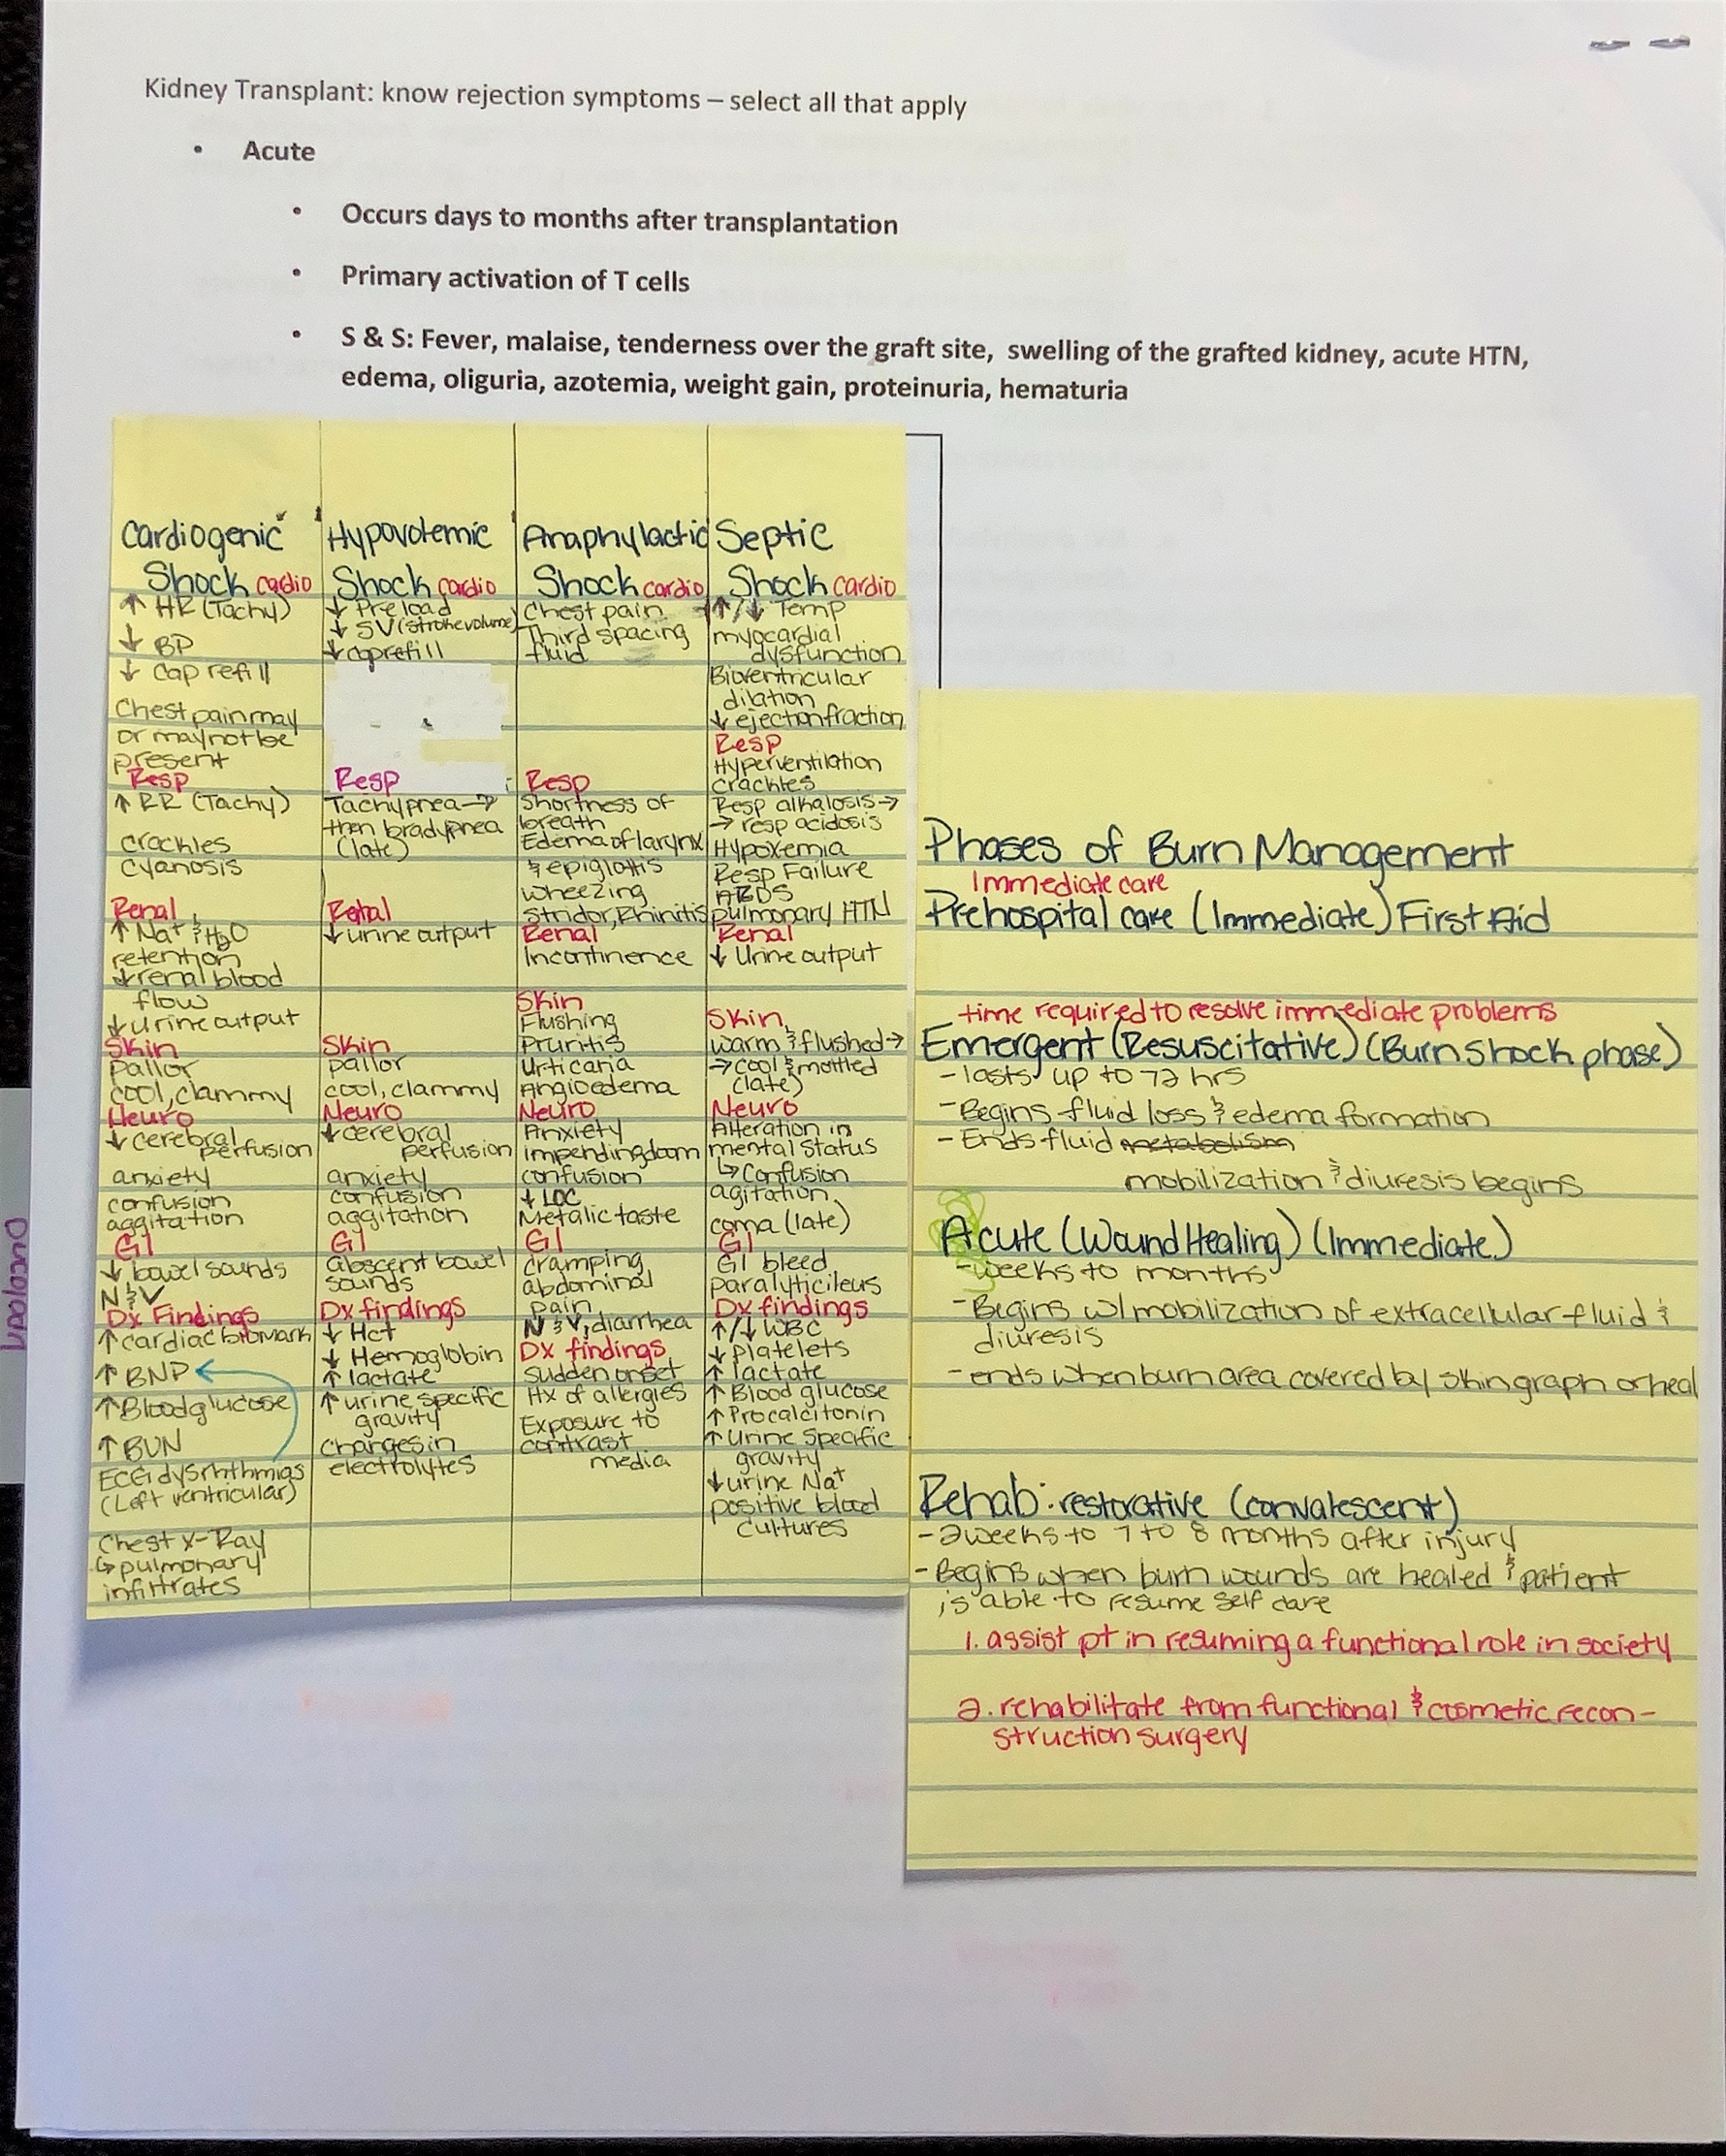 Kidney Transplant: know rejection symptoms – select all that apply
• Acute
• Occurs days to months after transplantation
• Primary activation of T cells
• S & S: Fever, malaise, tenderness over the graft site, swelling of the grafted kidney, acute HTN,
edema, oliguria, azotemia, weight gain, proteinuria, hematuria
Cardiogenic
Shock cardio
↑ HR (Tachy)
↓ BP
↓ cap refill
Chest pain may
or may not be
present
Resp
↑ RR (Tachy)
crackles
cyanosis
Renal
↑ Na+ & H2O
retention
↓ renal blood
flow
↓ urine output
Skin
Pallor
cool, clammy
Neuro
↓ cerebral
perfusion
anxiety
confusion
aggitation
GI
↓ bowel sounds
N&V
Dx Findings
↑ cardiac biomark
↑ BNP
↑ Blood glucose
↑ BUN
ECG dysrhthmias
(Left ventricular)
Chest x-Ray
↳ pulmonary
infiltrates
Hypovolemic
Shock cardio
↓ Preload
↓ SV (stroke volume)
↓ cap refill
Resp
Tachypnea →
then bradypnea
(late)
Renal
↓ urine output
Skin
pallor
cool, clammy
Neuro
↓ cerebral
perfusion
anxiety
confusion
aggitation
GI
abscent bowel
sounds
Dx findings
↓ Hct
↓ Hemoglobin
↑ lactate
↑ urine specific
gravity
Changes in
electrolytes
Anaphylactic
Shock cardio
Chest pain
Third spacing
fluid
Resp
Shortness of
breath
Edema of larynx
& epiglottis
wheezing
Stridor, Rhinitis
Renal
Incontinence
Skin
Flushing
Pruritis
Urticaria
Angioedema
Neuro
Anxiety
impending doom
confusion
↓ LOC
Metalic taste
GI
cramping
abdominal
pain
N&V, diarrhea
Dx findings
sudden onset
Hx of allergies
Exposure to
contrast
media
Septic
Shock cardio
↑/↓ Temp
myocardial
dysfunction
Bioventricular
dilation
↓ ejection fraction
Resp
Hyperventilation
crackles
Resp alkalosis →
→ resp acidosis
Hypoxemia
Resp Failure
ARDS
pulmonary HTN
Renal
↓ Urine output
Skin
warm & flushed →
→ cool & mottled
(late)
Neuro
Alteration in
mental status
↳ confusion
agitation
coma (late)
GI
GI bleed
paralytic ileus
Dx findings
↑/↓ WBC
↓ platelets
↑ lactate
↑ Blood glucose
↑ Procalcitonin
↑ Urine specific
gravity
↓ urine Na+
positive blood
cultures
Phases of Burn Management
Immediate care
Prehospital care (Immediate) First Aid
time required to resolve immediate problems
Emergent (Resuscitative) (Burn Shock phase)
- lasts up to 72 hrs
- Begins fluid loss & edema formation
- Ends fluid metabolism
mobilization & diuresis begins
Acute (Wound Healing) (Immediate)
- weeks to months
- Begins w/ mobilization of extracellular fluid &
diuresis
- ends when burn area covered by skin graph or heal
Rehab: restorative (convalescent)
- 2 weeks to 7 to 8 months after injury
- Begins when burn wounds are healed & patient
is able to resume self care
1. assist pt in resuming a functional role in society
2. rehabilitate from functional & cosmetic recon-
struction surgery